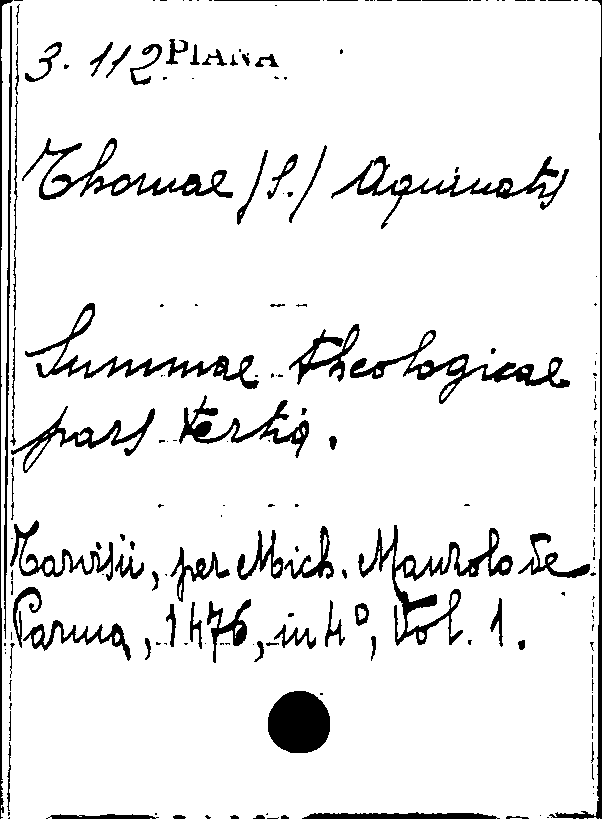 3. 112 PIANA
Thomae (S.) Aquinatis
Summae theologicae
pars tertia.
Tarvisii, per Mich. Manzolo de
Parma, 1476, in 4º, Vol. 1.